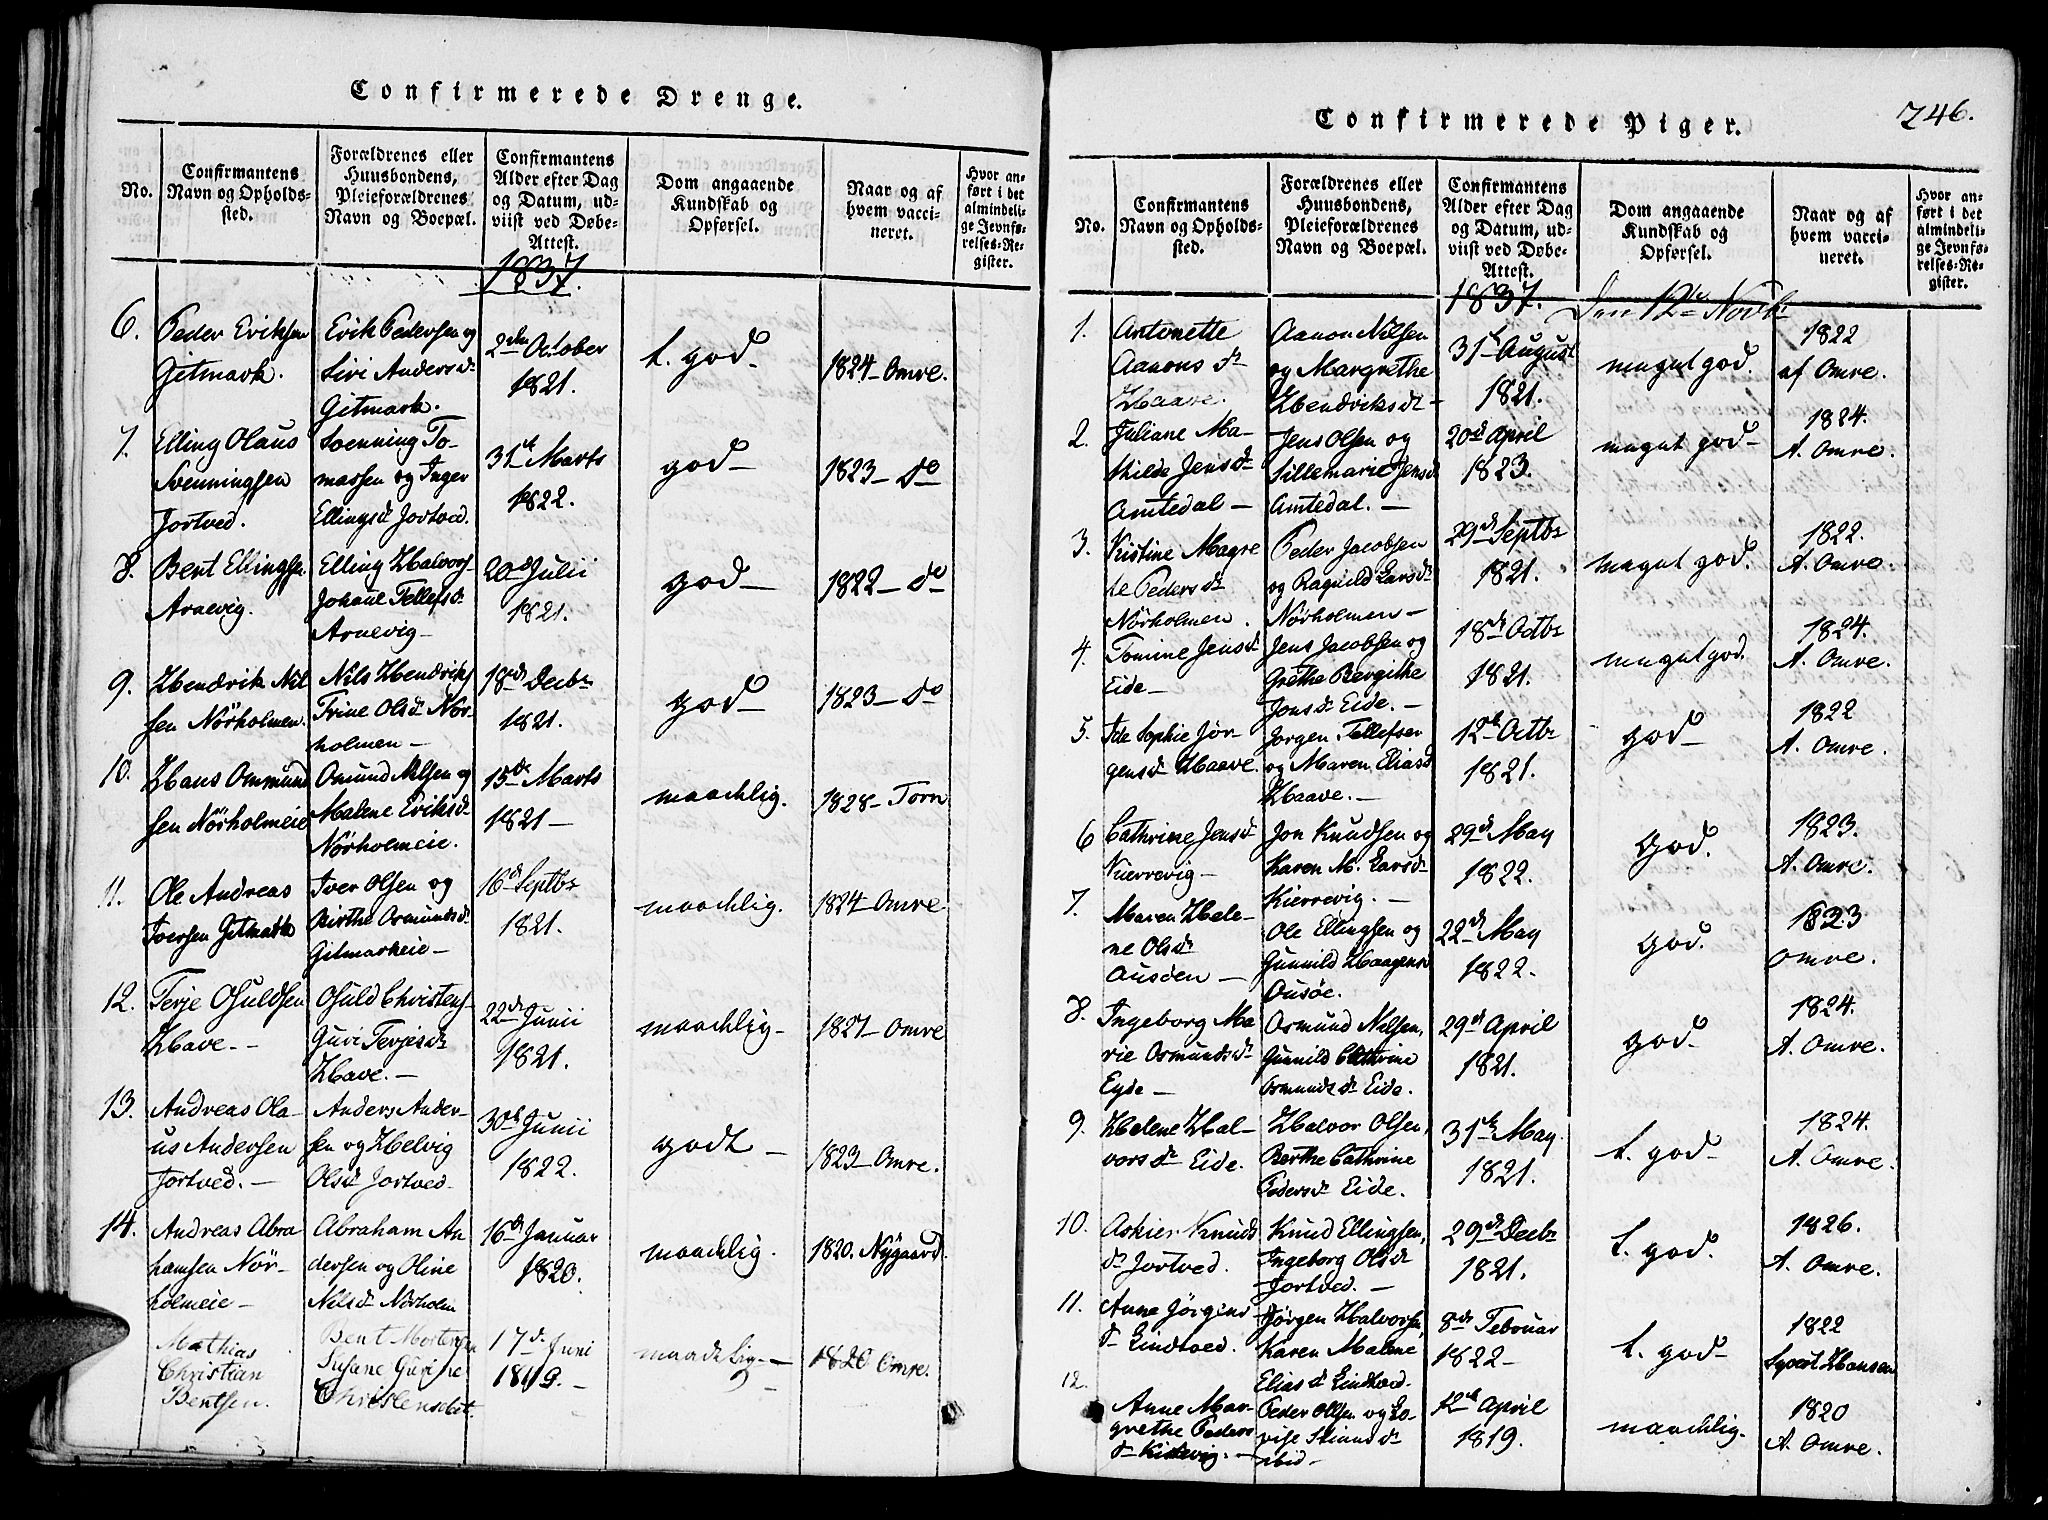 Confirmerede Drenge.
No.
Confirmantens
Navn og Opholds-
sted.
Forældrenes eller
Huusbondens,
Pleieforældrenes
Navn og Boepæl.
Confirmantens
Alder efter Dag
og Datum, ud-
viist ved Døbe-
Attest.
Dom angaaende
Kundskab og
Opførsel.
Naar og af
hvem vacci-
neret.
Hvor an-
ført i det
almindeli-
ge Jevnfø-
relses-Re-
gister.
1837.
6.
Peder Eriksen
Gitmark.
Erik Pedersen og
Siri Anders dr
Gitmark.
2den October
1821.
t. god-
1824- Omre.
7.
Elling Olaus
Svenningsen
Jortved.
Svenning To-
massen og Inger
Ellings dr Jortved.
31te Marts
1822.
god-
1823- do
8.
Bent Ellingsen
Arnevig.
Elling Halvors
Johane Tellefs dr
Arnevig-
20de Julii
1821.
god-
1822- do
9.
Hendrik Nil
sen Nörholmen.
Nils Hendriks
Trine Ols dr Nör-
holmen-
18de Decbr
1821.
god-
1823- do
10.
Hans Ommund
sen Nörholmeie
Omund Nilsen og
Malene Eriks dr
Nörholmeie.
15de Marts
1821-
maadelig.
1828- Torn
11.
Ole Andreas
Iversen Gitmark
Iver Olsen og
Birthe Osmunds dr
Gitmarkeie-
16de Septbr
1821.
maadelig.
1824- Omre
12.
Terje Osuldsen
Have.-
Osuld Christens
Guri Terjes dr
Have.-
22de Junii
1821.
maadelig-
1821- Omre
13.
Andreas Ola-
us Andersen
Jortved.-
Anders Ander-
sen og Helvig
Ols dr Jortved-
30te Junii
1822.
godt-
1823- Omre.
14.
Andreas Abra
hamsen Nör-
holmeie-
Abraham An
dersen og Oline
Nils dr Nörholm
16de Januar
1820.
maadelig.
1820. Nygaard.
Mathias
Christian
Bentsen.
Bent Mortensen
Susane Gurine
Christensdat.
17de Juni
1819.-
maadelig.-
1820 Omre.
Confirmerede Piger.
746.
No.
Confirmantens
Navn og Opholds-
sted.
Forældrenes eller
Huusbondens,
Pleieforældrenes
Navn og Boepæl.
Confirmantens
Alder efter Dag
og Datum, ud-
viist ved Døbe-
Attest.
Dom angaaende
Kundskab og
Opførsel.
Naar og af
hvem vacci-
neret.
Hvor an-
ført i det
almindeli-
ge Jevnfø-
relses-Re-
gister.
1837.
Den 12te Novbr
1.
Antonette
Aanons dr
Haave.
Aanon Nilsen
og Margrethe
Hendriks dr-
31te August
1821.
meget god.
1822
af Omre.
2.
Juliane Ma-
thilde Jens dr
Amtedal-
Jens Olsen og
Sillemarie Jens dr
Amtedal.-
20de April
1823.
meget god-
1824.
A. Omre.
3.
Kistine Magre
te Peders dr
Nörholmen.
Peder Jacobsen
og Ragnild Lars dr
Nörholmen-
29de Septbr
1821.
meget god.
1822.
A. Omre.
4.
Tomine Jens dr
Eide-
Jens Jacobsen og
Grethe Bergithe
Jons dr Eide.-
18de Octbr
1821.
meget god.
1824.
A. Omre.
5.
Ide Sophie Jör-
gens dr Haave.
Jorgen Tellefsen
og Maren Elias dr
Haave.-
12te Octbr
1821.
god-
1822
A. Omre.
6
Cathrine Jens dr
Kierrevig-
Jon Knudsen og
Karen M. Lars dr
Kierrevig.-
29de May
1822.
god.
1823.
A. Omre.
7.
Maren Hele-
ne Ols dr
Ausöen-
Ole Ellingsen og
Gunnild Haagens dr
Ousöe.
22de May
1822.
god.
1823
Omre.
8.
Ingeborg Ma
rie Osmunds dr
Eyde-
Osmund Nilsen,
Gunnild Cathrine
Osmunds dr Eide.
29de April
1821.
god-
1824.
A. Omre.
9.
Helene Hal-
vors dr Eide.
Halvor Olsen,
Berthe Cathrine
Peders dr Eide.
31te May
1821.
t. god-
1824.
A. Omre.
10.
Askier Knuds
dr Jortved.
Knud Ellingsen,
Ingeborg Ols dr
Jortved.-
29de Decbr
1821.
t. god.
1826.
A. Omre.
11.
Anne Jörgens
dr Lindtved.
Jörgen Halvorsen,
Karen Malene
Elias dr Lindtved.
8de Februar
1822-
t. god-
1822
Syvert Hansen
12.
Anne Mar-
grethe Peders
dr Kierevig.-
Peder Olsen og Lo-
vise Stians dr
ibid-
12te April
1819.
maadelig.
1820
A. Omre.